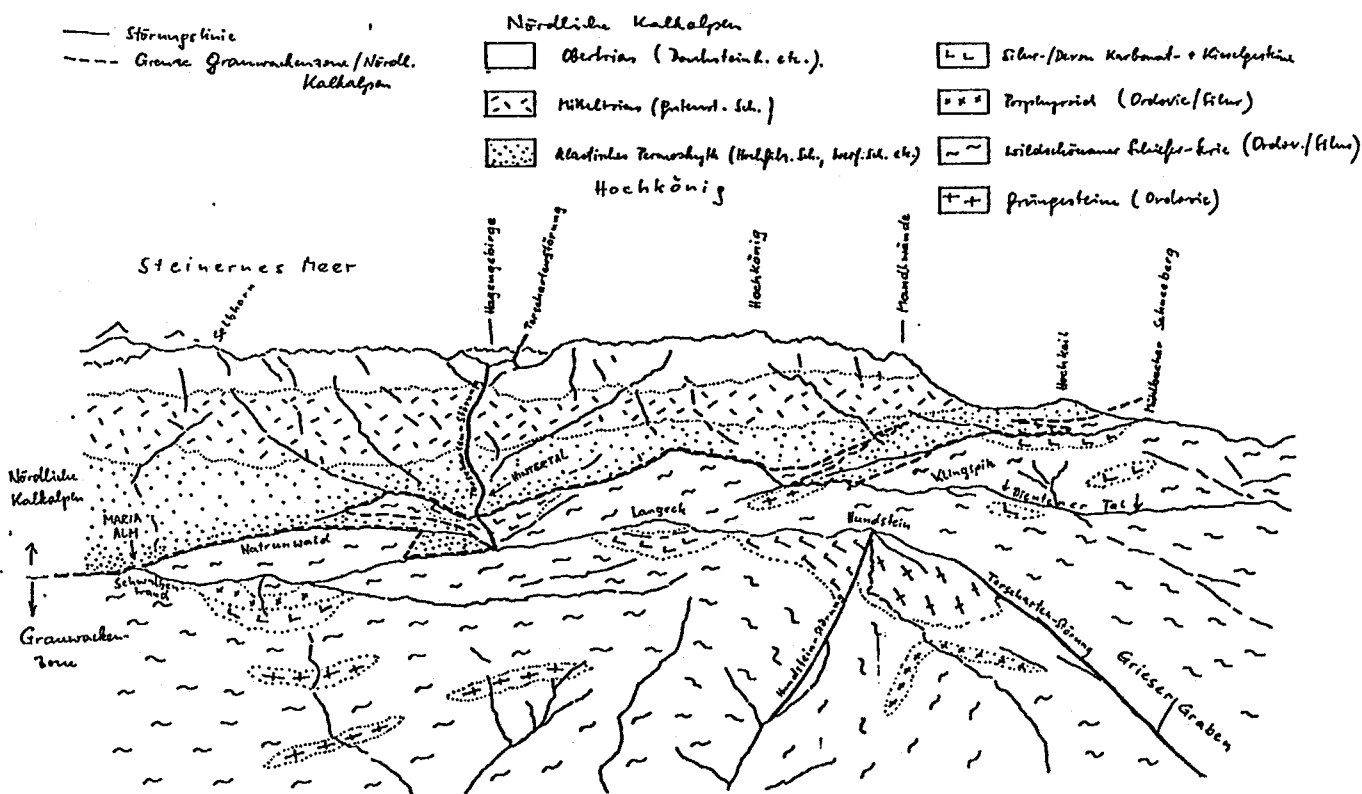 Störungslinie
Grenze Grauwackenzone/Nördl.
Kalkalpen
Nördliche Kalkalpen
Obertrias (Dachsteink. etc.).
Mitteltrias (Gutenst. Sch.)
Klastisches Permoskyth (Hochfilz. Sch., Werf. Sch. etc.)
Silur-/Devon Karbonat- + Kieselgesteine
Porphyroid (Ordovic/Silur)
Wildschönauer Schiefer-Serie (Ordov./Silur)
Grüngesteine (Ordovic)
Hochkönig
Steinernes Meer
Selbhorn
Hagengebirge
Torschartenstörung
Hochkönig
Mandlwände
Hochkeil
Mühlbacher Schneeberg
HINTERTAL
Nördliche
Kalkalpen
MARIA
ALM
Natrunwald
Schwalben
wand
Langeck
Klingspitz
↓ Dientener Tal ↓
Hundstein
Grauwacken-
zone
Hundstein-Störung
Torscharten-Störung
Grieser Graben